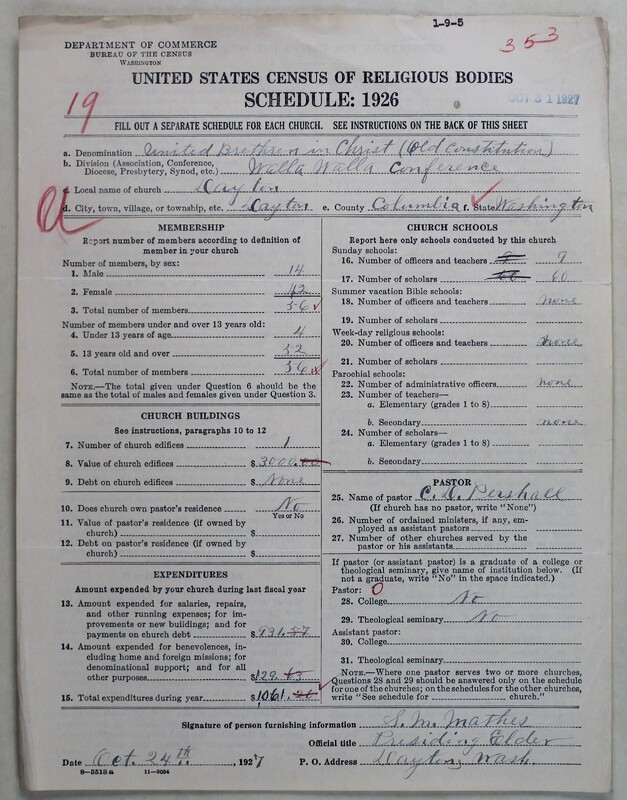 1-9-5
353
DEPARTMENT OF COMMERCE
BUREAU OF THE CENSUS
WASHINGTON
UNITED STATES CENSUS OF RELIGIOUS BODIES
SCHEDULE: 1926
OCT 31 1927
19
FILL OUT A SEPARATE SCHEDULE FOR EACH CHURCH. SEE INSTRUCTIONS ON THE BACK OF THIS SHEET
a. Denomination United Brethren in Christ (Old Constitution)
b. Division (Association, Conference, Diocese, Presbytery, Synod, etc.) Walla Walla Conference
c. Local name of church Dayton
d. City, town, village, or township, etc. Dayton e. County Columbia f. State Washington
MEMBERSHIP
Report number of members according to definition of
member in your church
Number of members, by sex:
1. Male 14
2. Female 42
3. Total number of members 56
Number of members under and over 13 years old:
4. Under 13 years of age 4
5. 13 years old and over 52
6. Total number of members 56
NOTE.—The total given under Question 6 should be
same as the total of males and females given under Question 3.
CHURCH BUILDINGS
See instructions, paragraphs 10 to 12
7. Number of church edifices 1
8. Value of church edifices $ 3000.00
9. Debt on church edifices $ None
10. Does church own pastor's residence? No
Yes or No
11. Value of pastor's residence (if owned by
church) $
12. Debt on pastor's residence (if owned by
church) $
EXPENDITURES
Amount expended by your church during last fiscal year
13. Amount expended for salaries, repairs,
and other running expenses; for im-
provements or new buildings; and for
payments on church debt $931.57
14. Amount expended for benevolences,
including home and foreign missions; for
denominational support; and for all
other purposes $129.63
15. Total expenditures during year $1061.20
CHURCH SCHOOLS
Report here only schools conducted by this church
Sunday schools:
16. Number of officers and teachers 9
17. Number of scholars 60
Summer vacation Bible schools:
18. Number of officers and teachers none
19. Number of scholars
Week-day religious schools:
20. Number of officers and teachers none
21. Number of scholars
Parochial schools:
22. Number of administrative officers none
23. Number of teachers—
a. Elementary (grades 1 to 8)
b. Secondary none
24. Number of scholars—
a. Elementary (grades 1 to 8)
b. Secondary
PASTOR
25. Name of pastor C. D. Pershall
(If church has no pastor, write "None")
26. Number of ordained ministers, if any, em-
ployed as assistant pastors
27. Number of other churches served by the
pastor or his assistants
If pastor (or assistant pastor) is a graduate of a college or
theological seminary, give name of institution below. (If
not a graduate, write "No" in the space indicated.)
Pastor: O
28. College No
29. Theological seminary No
Assistant pastor:
30. College
31. Theological seminary
NOTE.—Where one pastor serves two or more churches,
Questions 28 and 29 should be answered only on the schedule
for one of the churches; on the schedules for the other churches,
write "See schedule for church."
Signature of person furnishing information S. M. Mathes
Official title Presiding Elder
Date Oct. 24th, 1927 P. O. Address Dayton, Wash.
8-5518a 11-9054